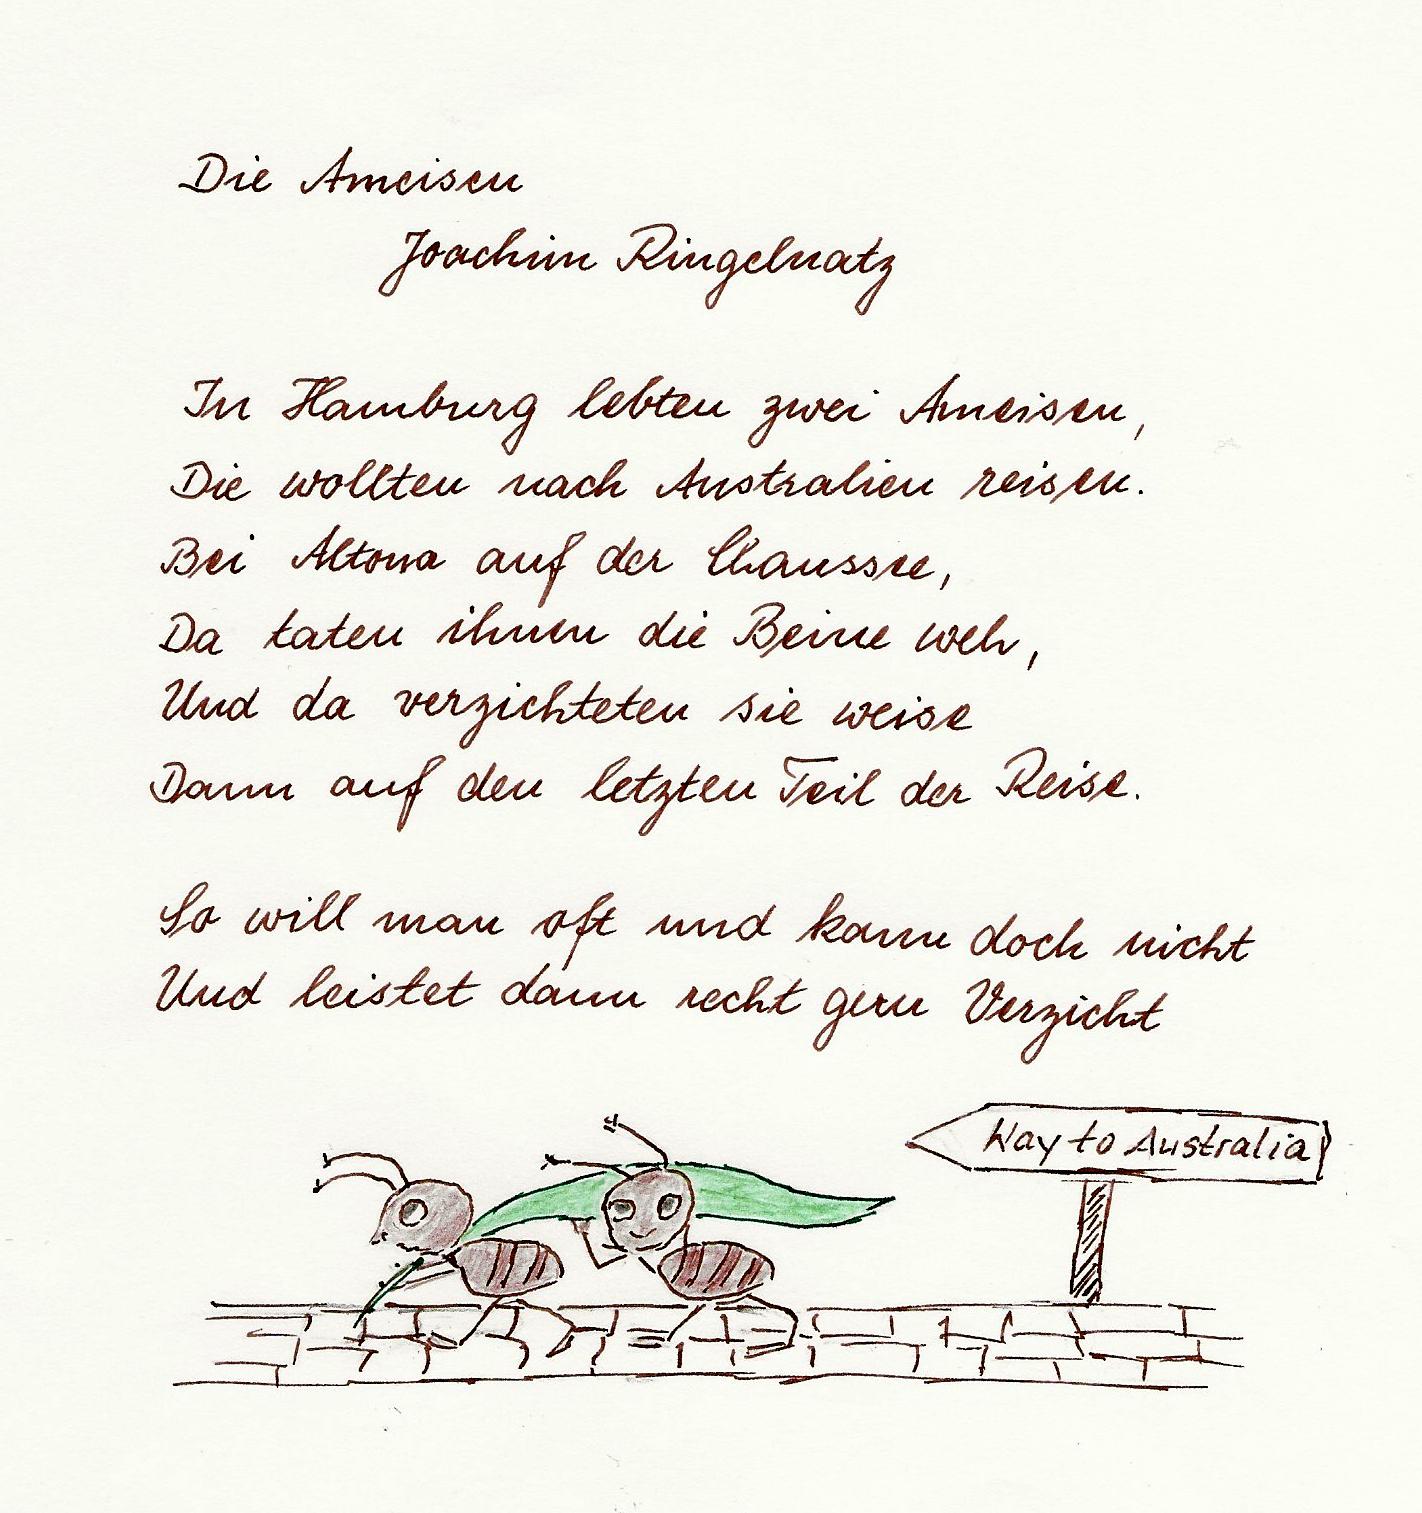 Die Ameisen
Joachim Ringelnatz
In Hamburg lebten zwei Ameisen,
Die wollten nach Australien reisen.
Bei Altona auf der Chaussee,
Da taten ihnen die Beine weh,
Und da verzichteten sie weise
Dann auf den letzten Teil der Reise.
So will man oft und kann doch nicht
Und leistet dann recht gern Verzicht
Way to Australia